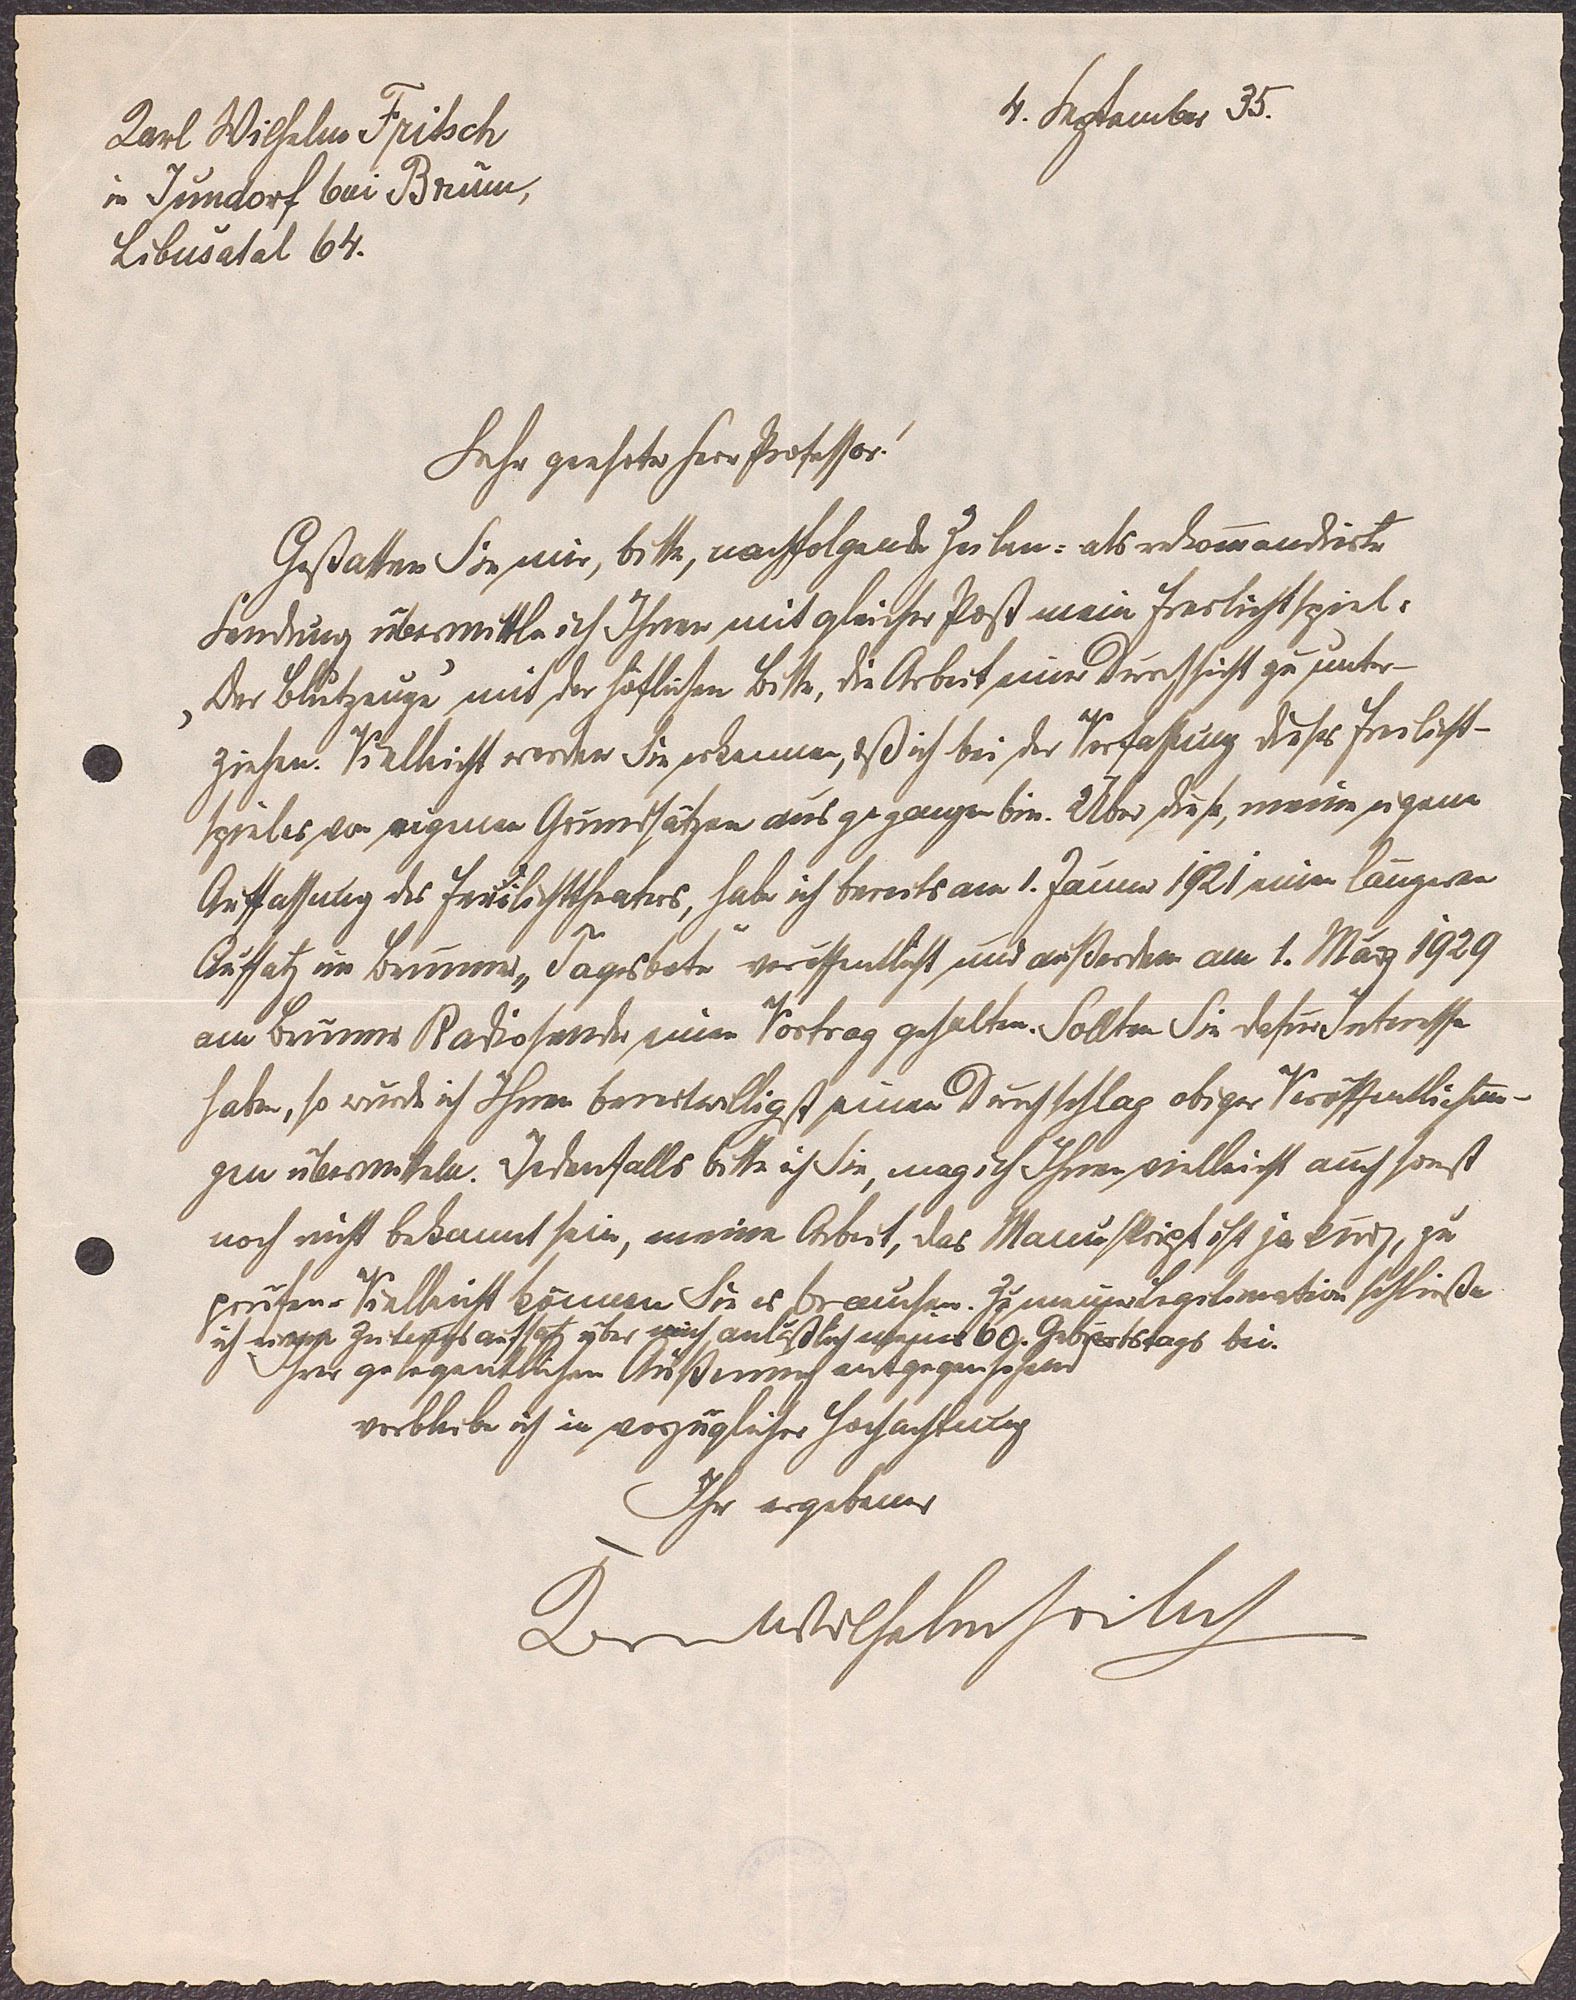 Karl Wilhelm Fritsch
in Jundorf bei Brünn,
Libušatal 64.
4. September 35.
Sehr geehrter Herr Professor!
Gestatten Sie mir, bitte, nachfolgende Zeilen: als rekommandierte
Sendung übermittle ich Ihnen mit gleicher Post mein Freilichtspiel:
„Der Blutzeuge" mit der höflichen Bitte, die Arbeit einer Durchsicht zu unter-
ziehen. Vielleicht werden Sie erkennen, daß ich bei der Verfassung dieses Freilicht-
spieles von eigenen Grundsätzen ausgegangen bin. Über diese, meine eigene
Auffassung des Freilichttheaters, habe ich bereits am 1. Jänner 1921 einen längeren
Aufsatz im Brünner „Tagesbote" veröffentlicht und außerdem am 1. März 1929
am Brünner Radiosender einen Vortrag gehalten. Sollten Sie dafür Interesse
haben, so würde ich Ihnen bereitwilligst einen Durchschlag obiger Veröffentlichun-
gen übermitteln. Jedenfalls bitte ich Sie, mag ich Ihnen vielleicht auch sonst
noch nicht bekannt sein, meine Arbeit, das Manuskript ist ja kurz, zu
prüfen. Vielleicht können Sie es brauchen. Zu meiner Legitimation schließe
ich einen Zeitungsaufsatz über mich anläßlich meines 60. Geburtstags bei.
Ihrer gelegentlichen Äußerung entgegensehend
verbleibe ich in vorzüglicher Hochachtung
Ihr ergebener
Karl Wilhelm Fritsch